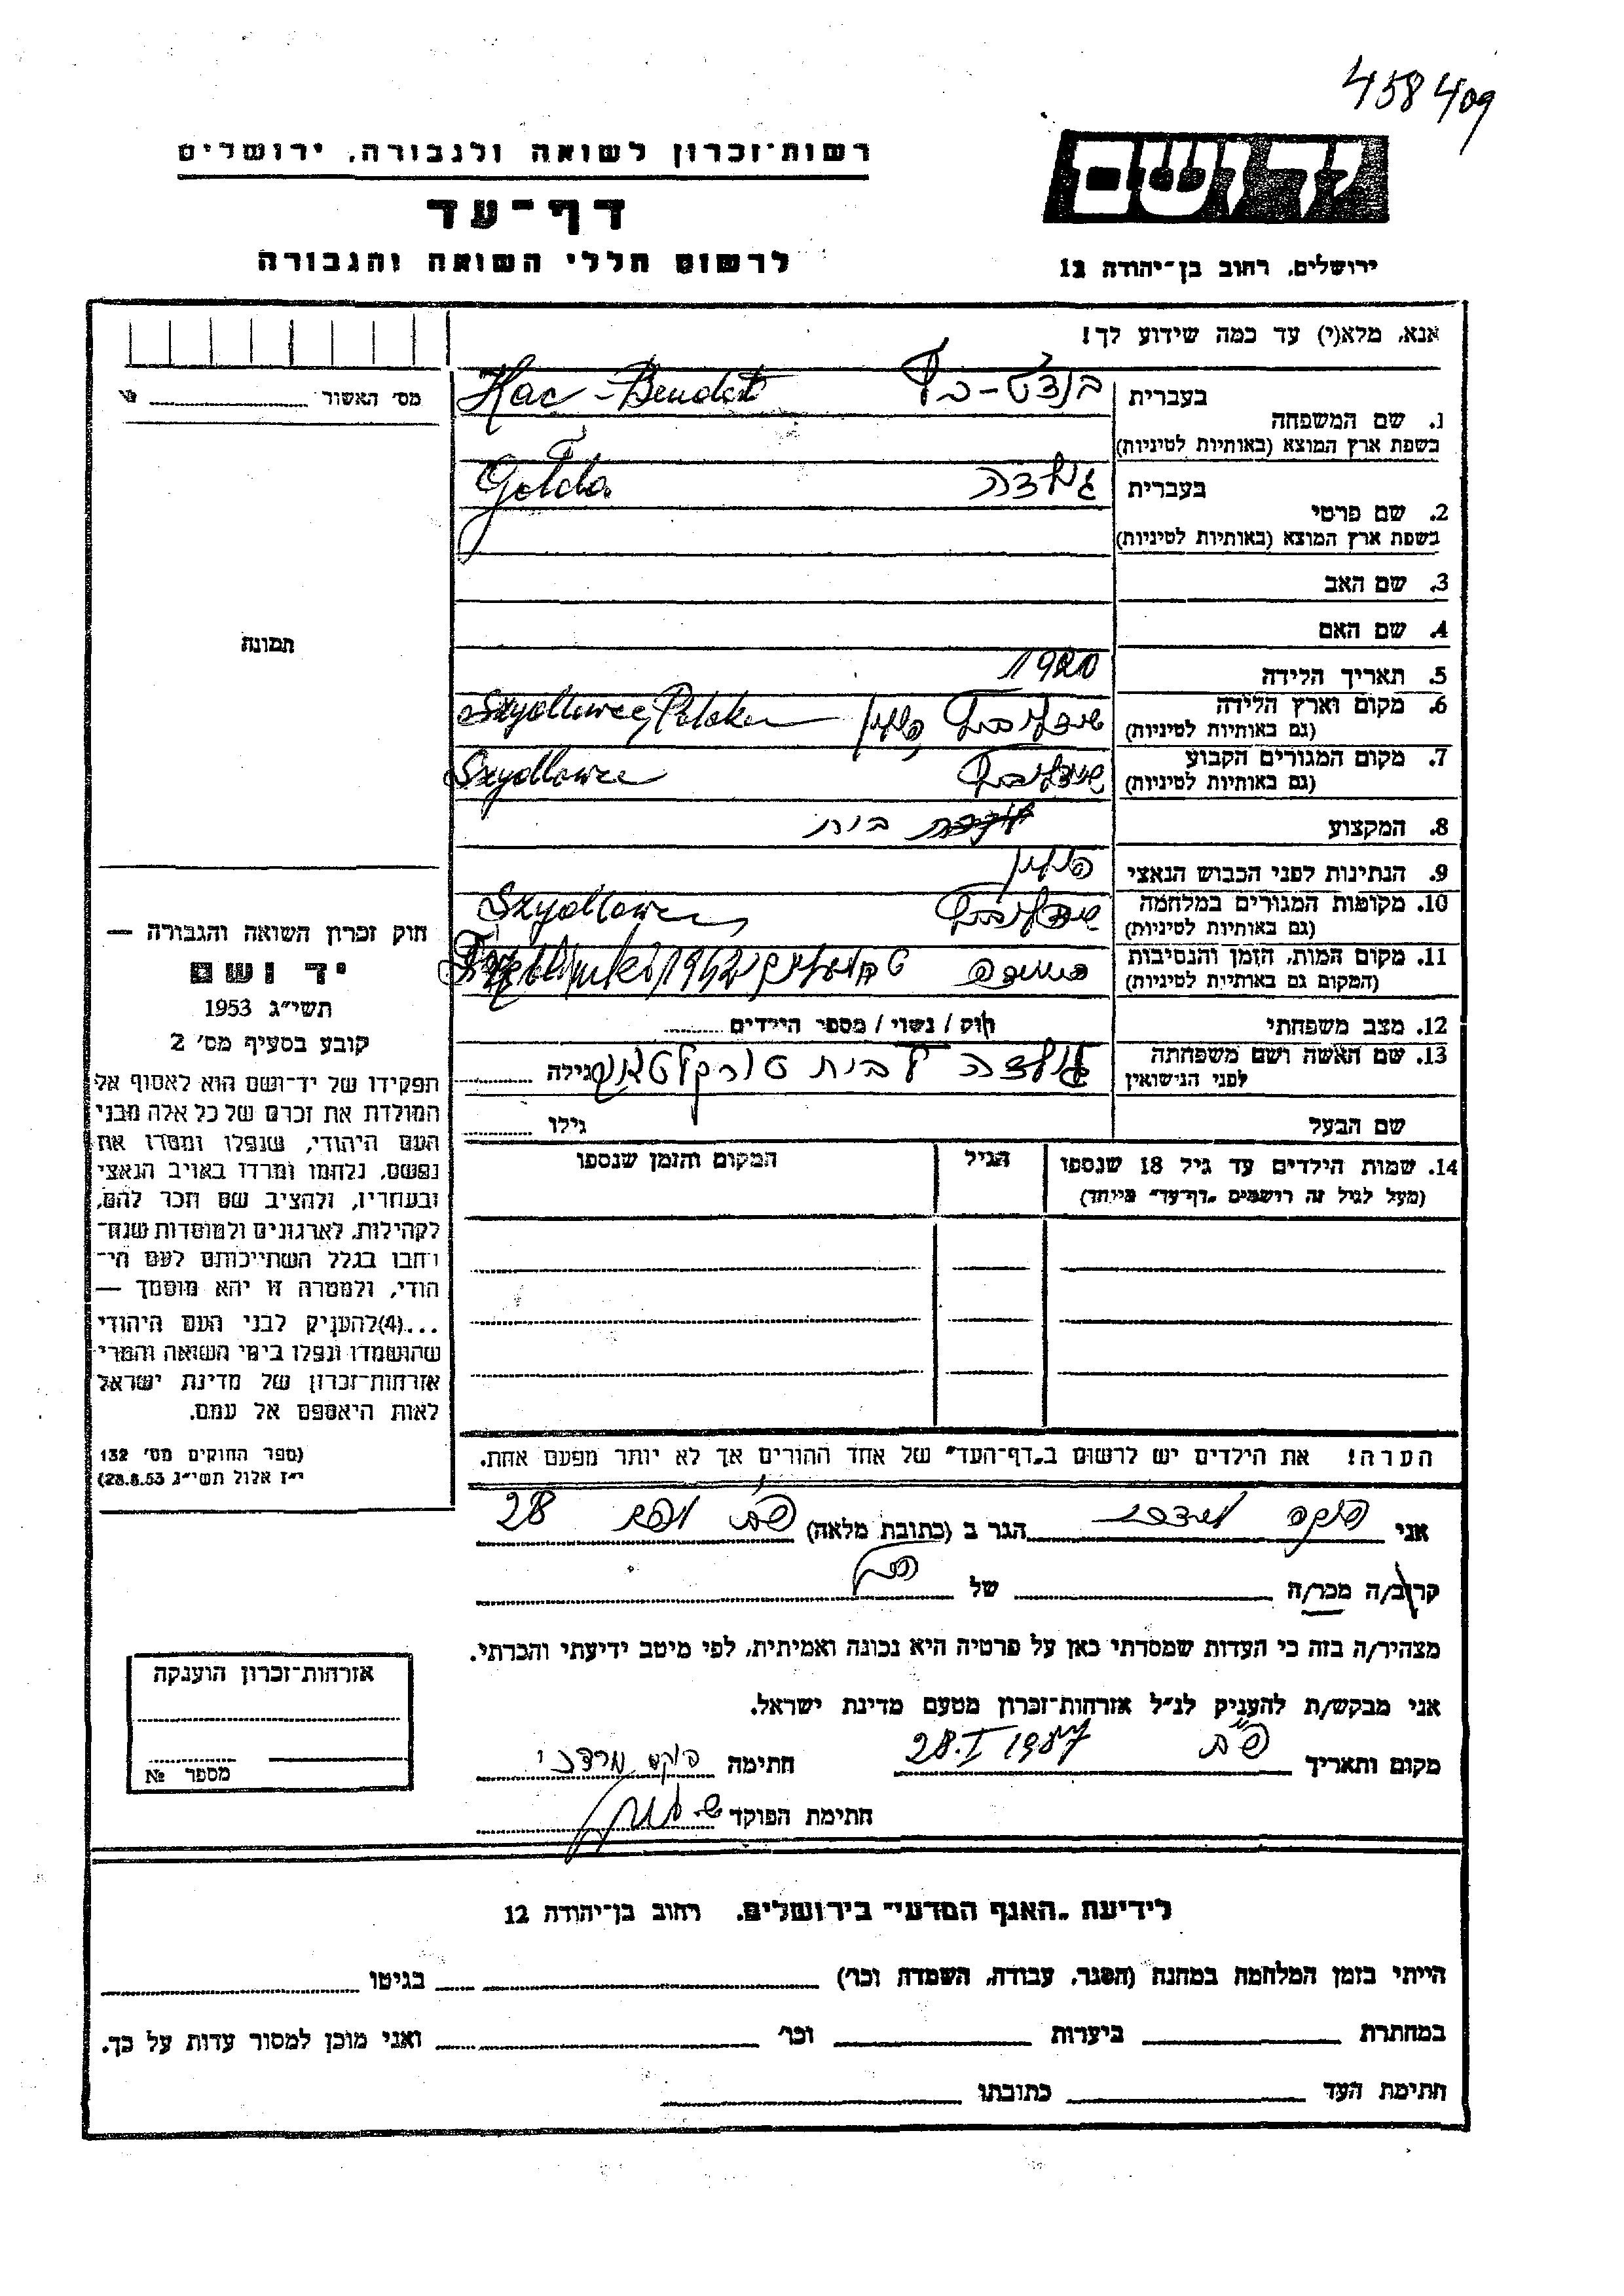 458409
רשות־זכרון לשואה ולגבורה, ירושלים
דף־עד
לרשום חללי השואה והגבורה
יד ושם
ירושלים, רחוב בן־יהודה 12
אנא, מלא(י) עד כמה שידוע לך!
מס׳ האשור
תמונה
1. שם המשפחה
בעברית
Kac - Bendet
בשפת ארץ המוצא (באותיות לטיניות)
2. שם פרטי
בעברית גולדה
Golda
בשפת ארץ המוצא (באותיות לטיניות)
3. שם האב
4. שם האם
5. תאריך הלידה 1920
6. מקום וארץ הלידה
(גם באותיות לטיניות) שידלובץ פולין Szydlowce, Polska
7. מקום המגורים הקבוע
(גם באותיות לטיניות) שידלובץ Szydlowce
8. המקצוע בית
9. הנתינות לפני הכבוש הנאצי פולין
10. מקומות המגורים במלחמה
(גם באותיות לטיניות) שידלובץ Szydlowce
11. מקום המות, הזמן והנסיבות
(המקום גם באותיות לטיניות) טרבלינקי 1942
12. מצב משפחתי רווק / נשוי / מספר הילדים
13. שם האשה ושם משפחתה
לפני הנישואין גולדה לבית גילה
שם הבעל גילו
14. שמות הילדים עד גיל 18 שנספו הגיל המקום והזמן שנספו
(מעל לגיל זה רושמים „דף־עד״ מיוחד)
הערה! את הילדים יש לרשום ב„דף־העד״ של אחד ההורים אך לא יותר מפעם אחת.
חוק זכרון השואה והגבורה —
יד ושם
תשי״ג 1953
קובע בסעיף מס׳ 2
תפקידו של יד־ושם הוא לאסוף אל
המולדת את זכרם של כל אלה מבני
העם היהודי, שנפלו ומסרו את
נפשם, נלחמו ומרדו באויב הנאצי
ובעוזריו, ולהציב שם וזכר להם,
לקהילות, לארגונים ולמוסדות שנח־
רבו בגלל השתייכותם לעם הי־
הודי, ולמטרה זו יהא מוסמך —
...(4)להעניק לבני העם היהודי
שהושמדו ונפלו בימי השואה והמרי
אזרחות־זכרון של מדינת ישראל
לאות היאספם אל עמם.
(ספר החוקים מס׳ 132
י״ז אלול תשי״ג 28.8.53)
אני הגר ב (כתובת מלאה) 28
קרוב/ה מכר/ה של
מצהיר/ה בזה כי העדות שמסרתי כאן על פרטיה היא נכונה ואמיתית, לפי מיטב ידיעתי והכרתי.
אני מבקש/ת להעניק לנ״ל אזרחות־זכרון מטעם מדינת ישראל.
מקום ותאריך 28.I 1987 חתימה
חתימת הפוקד
אזרחות־זכרון הוענקה
מספר №
לידיעת „האגף המדעי״ בירושלים, רחוב בן־יהודה 12
הייתי בזמן המלחמה במחנה (הסגר, עבודה, השמדה וכר׳) בגיטו
במחתרת ביערות וכר׳ ואני מוכן למסור עדות על כך.
חתימת העד כתובתו